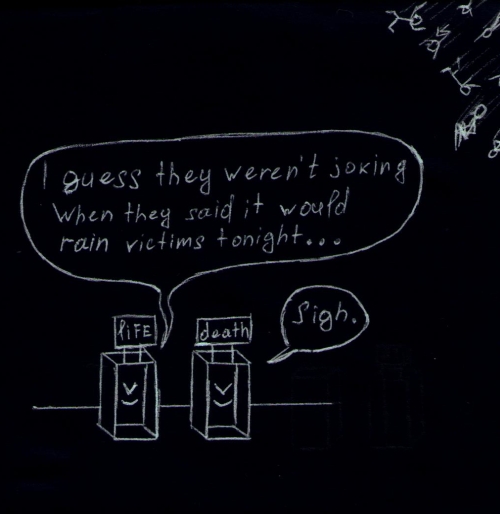 I guess they weren't joking
when they said it would
rain victims tonight...
Sigh.
liFE
death